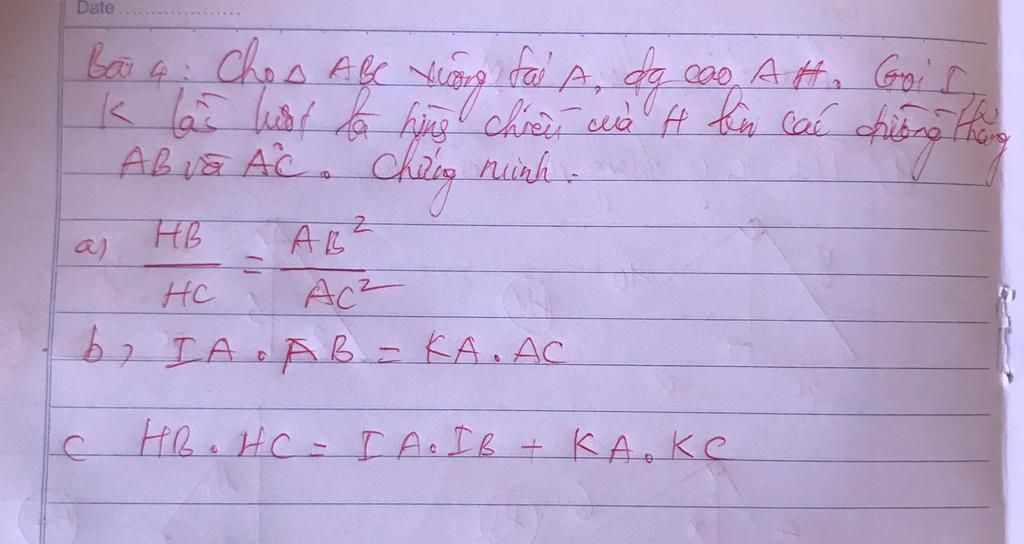 Date
Bài 4: Cho Δ ABC vuông tại A, đg cao AH. Gọi I,
K lần lượt là hình chiếu của H lên các đường thẳng
AB và AC. Chứng minh:
a) HB/HC = AB²/AC²
b, IA.AB = KA.AC
c HB.HC = IA.IB + KA.KC